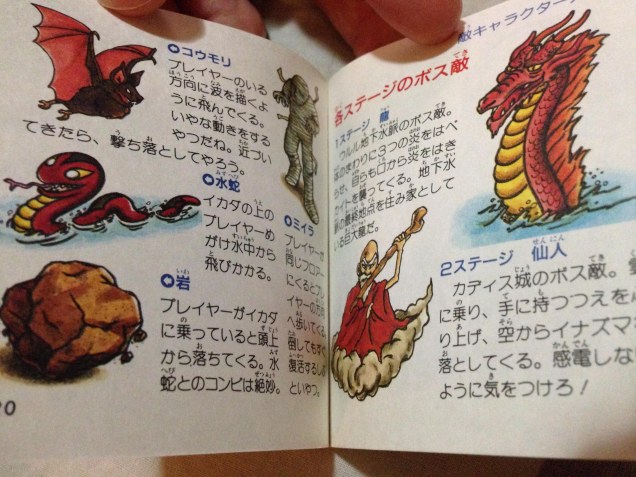 コウモリ
プレイヤーのいる
方向に波を描くよ
うに飛んでくる。
いやな動きをする
やつだね。近づい
てきたら、撃ち落としてやろう。
水蛇
イカダの上の
プレイヤーめ
がけ水中から
飛びかかる。
岩
プレイヤーがイカダ
に乗っていると頭上
から落ちてくる。水
蛇とのコンビは絶妙。
ミイラ
プレイヤーが
同じフロアー
にくるとプレ
イヤーの方
へ歩いてくる
倒してもすぐ
復活するし
といやつ。
20
敵キャラクター
各ステージのボス敵
1ステージ 龍
ウルル地下水脈のボス敵。
のまわりに3つの炎をはべ
らせ、自らも口から炎をはき
ナイトを襲ってくる。地下水
脈の最終地点を住み家として
いる巨大龍だ。
2ステージ 仙人
カディス城のボス敵。
に乗り、手に持つつえを
り上げ、空からイナズマ
落としてくる。感電しな
ように気をつけろ!